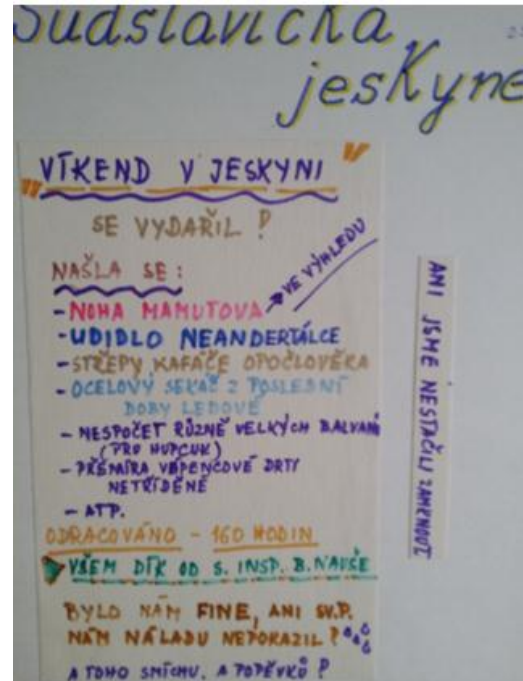 Sudslavická
jeskyně
"VÍKEND V JESKYNI"
SE VYDAŘIL!
NAŠLA SE:
- NOHA MAMUTOVA → VE VÝHLEDU
- UDIDLO NEANDERTÁLCE
- STŘEPY KAFÁČE OPOČLOVĚKA
- OCELOVÝ SEKÁČ Z POSLEDNÍ
DOBY LEDOVÉ
- NESPOČET RŮZNĚ VELKÝCH BALVANŮ
(PRO HUPCUK)
- PŘEMÍRA VÁPENCOVÉ DRTY
NETŘÍDĚNÉ
- ATP.
ODRACOVÁNO - 160 HODIN
VŠEM DÍK OD S. INSP. B. NAUŠE
BYLO NÁM FINE, ANI SV.P.
NÁM NÁLADU NEPOKAZIL!
A TOHO SMÍCHU, A POPĚVKŮ!
ANI JSME NESTAČILI ZAMRNOUT